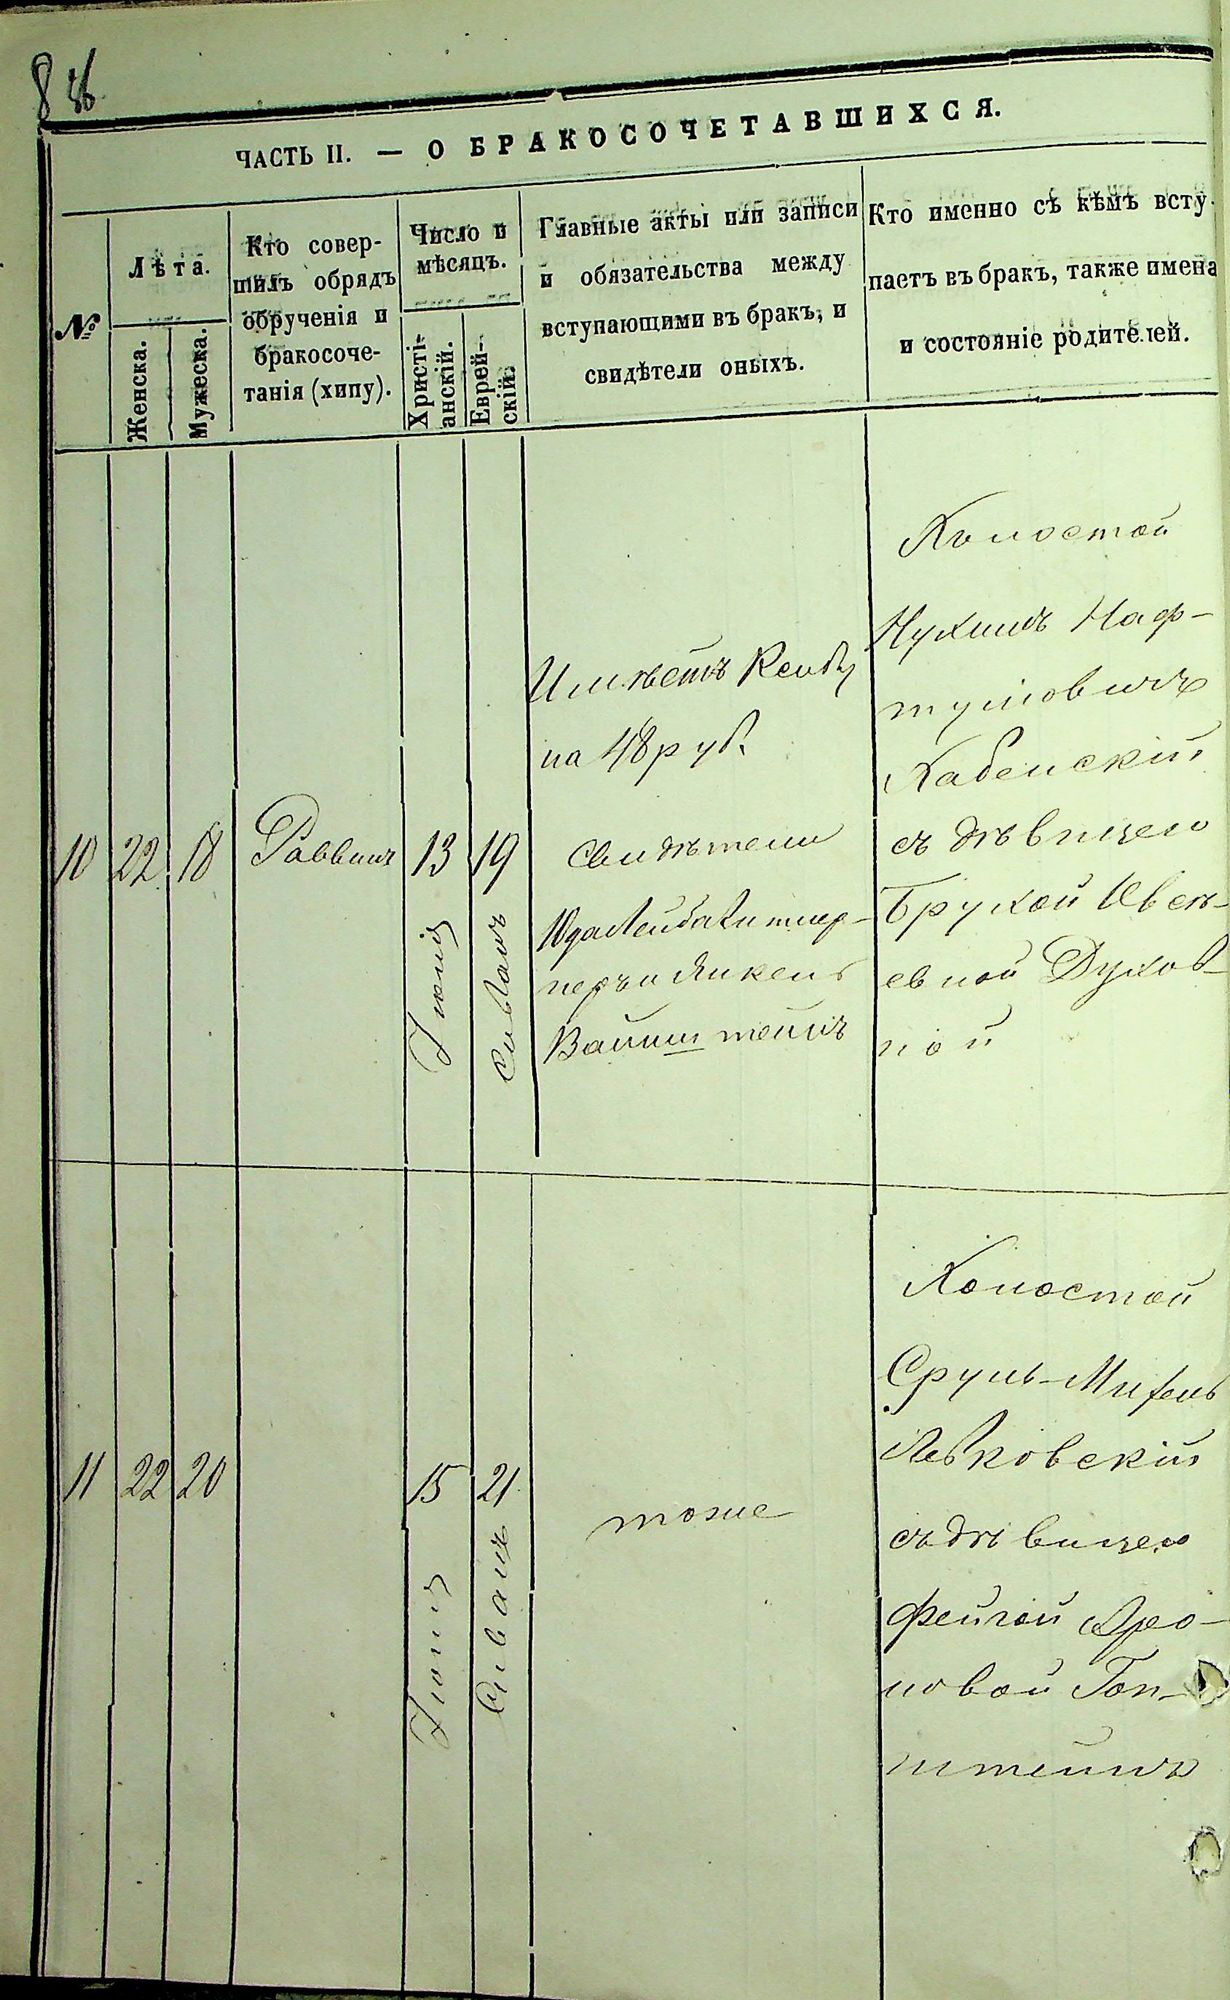 8 об
ЧАСТЬ II. — О БРАКОСОЧЕТАВШИХСЯ.
№
Лѣта.
Женска.
Мужеска.
Кто совер-
шилъ обрядъ
обрученія и
бракосоче-
танія (хипу).
Число и
мѣсяцъ.
Христі-
анскій.
Еврей-
скій.
Главные акты или записи
и обязательства между
вступающими въ бракъ, и
свидѣтели оныхъ.
Кто именно съ кѣмъ всту-
паетъ въ бракъ, также имена
и состояніе родителей.
10
22
18
Раввинъ
13
Іюня
19
Сиванъ
на 48 руб.
Свидѣтели
Вайнштейнъ
Холостой
Нухимъ Наф-
туловичъ
Хабенскій
съ дѣвицею
Брухой
евной Духов-
ной
11
22
20
15
Іюня
21
Сиванъ
тоже
Холостой
Сруль-Михель
съ дѣвицею
Фейгой Аро-
новой
штейнъ